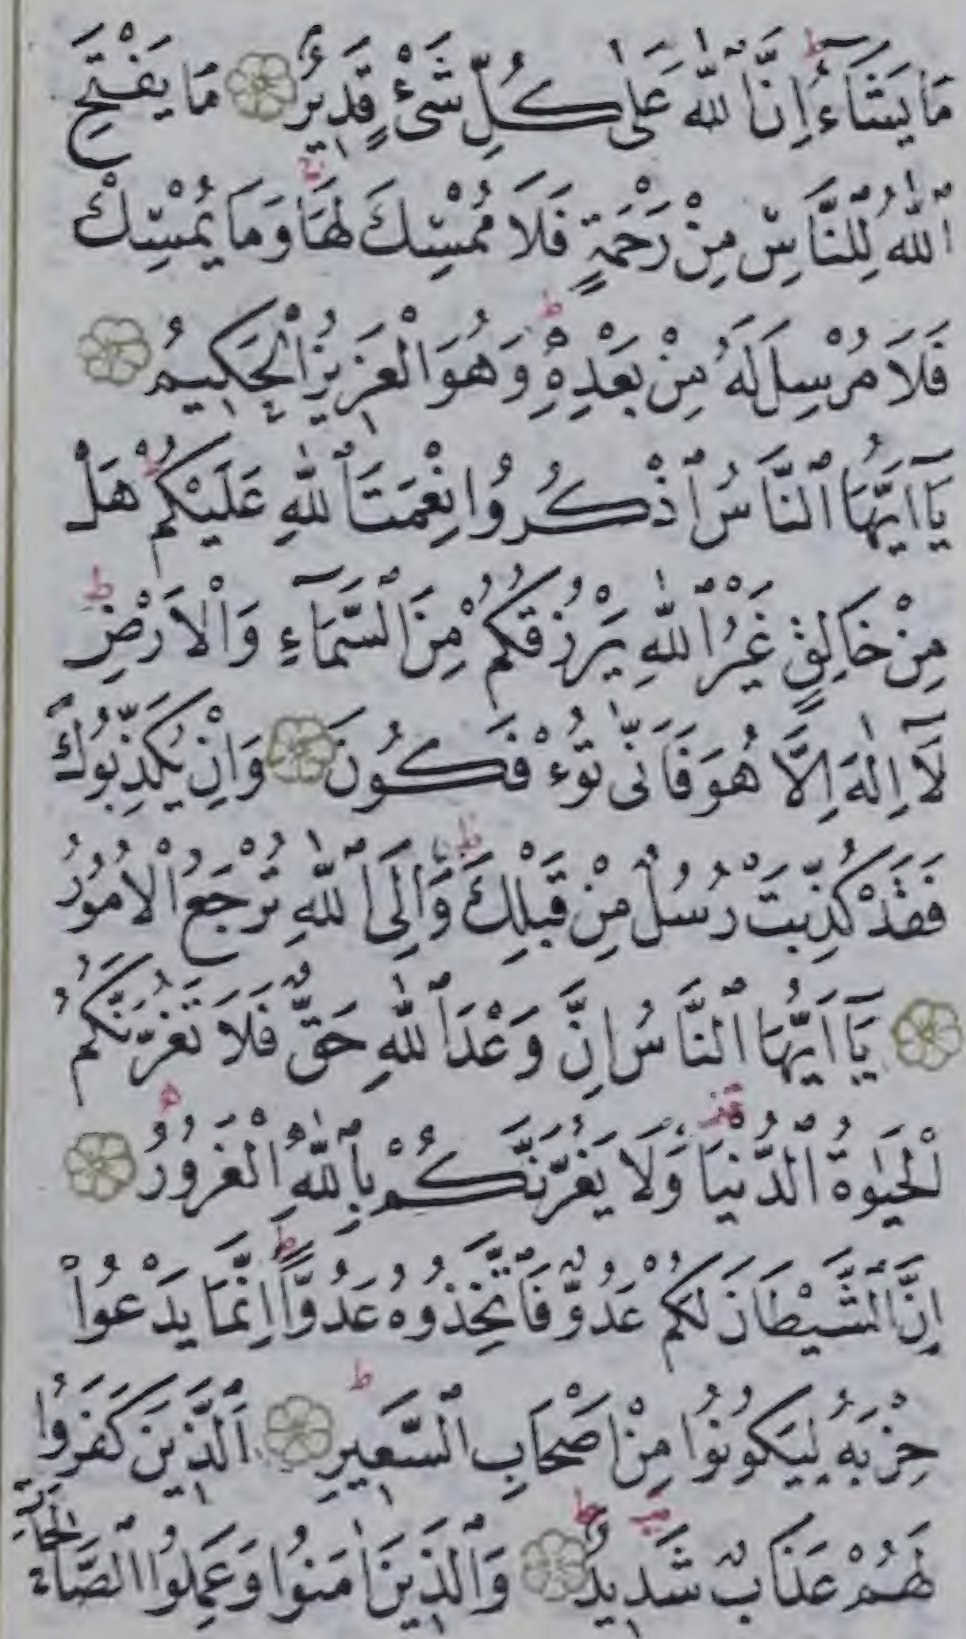 مَا يَشَٓاءُ اِنَّ اللّٰهَ عَلٰى كُلِّ شَىْءٍ قَدٖيرٌ ۞ مَا يَفْتَحِ
اللّٰهُ لِلنَّاسِ مِنْ رَحْمَةٍ فَلَا مُمْسِكَ لَهَا وَمَا يُمْسِكْ
فَلَا مُرْسِلَ لَهُ مِنْ بَعْدِهٖ وَهُوَ الْعَزٖيزُ الْحَكٖيمُ ۞
يَٓا اَيُّهَا النَّاسُ اذْكُرُوا نِعْمَتَ اللّٰهِ عَلَيْكُمْ هَلْ
مِنْ خَالِقٍ غَيْرُ اللّٰهِ يَرْزُقُكُمْ مِنَ السَّمَٓاءِ وَالْاَرْضِ
لَٓا اِلٰهَ اِلَّا هُوَ فَاَنّٰى تُؤْفَكُونَ ۞ وَاِنْ يُكَذِّبُوكَ
فَقَدْ كُذِّبَتْ رُسُلٌ مِنْ قَبْلِكَ وَاِلَى اللّٰهِ تُرْجَعُ الْاُمُورُ
۞ يَٓا اَيُّهَا النَّاسُ اِنَّ وَعْدَ اللّٰهِ حَقٌّ فَلَا تَغُرَّنَّكُمُ
الْحَيٰوةُ الدُّنْيَا وَلَا يَغُرَّنَّكُمْ بِاللّٰهِ الْغَرُورُ ۞
اِنَّ الشَّيْطَانَ لَكُمْ عَدُوٌّ فَاتَّخِذُوهُ عَدُوًّا اِنَّمَا يَدْعُوا
حِزْبَهُ لِيَكُونُوا مِنْ اَصْحَابِ السَّعٖيرِ ۞ اَلَّذٖينَ كَفَرُوا
لَهُمْ عَذَابٌ شَدٖيدٌ ۞ وَالَّذٖينَ اٰمَنُوا وَعَمِلُوا الصَّالِحَاتِ